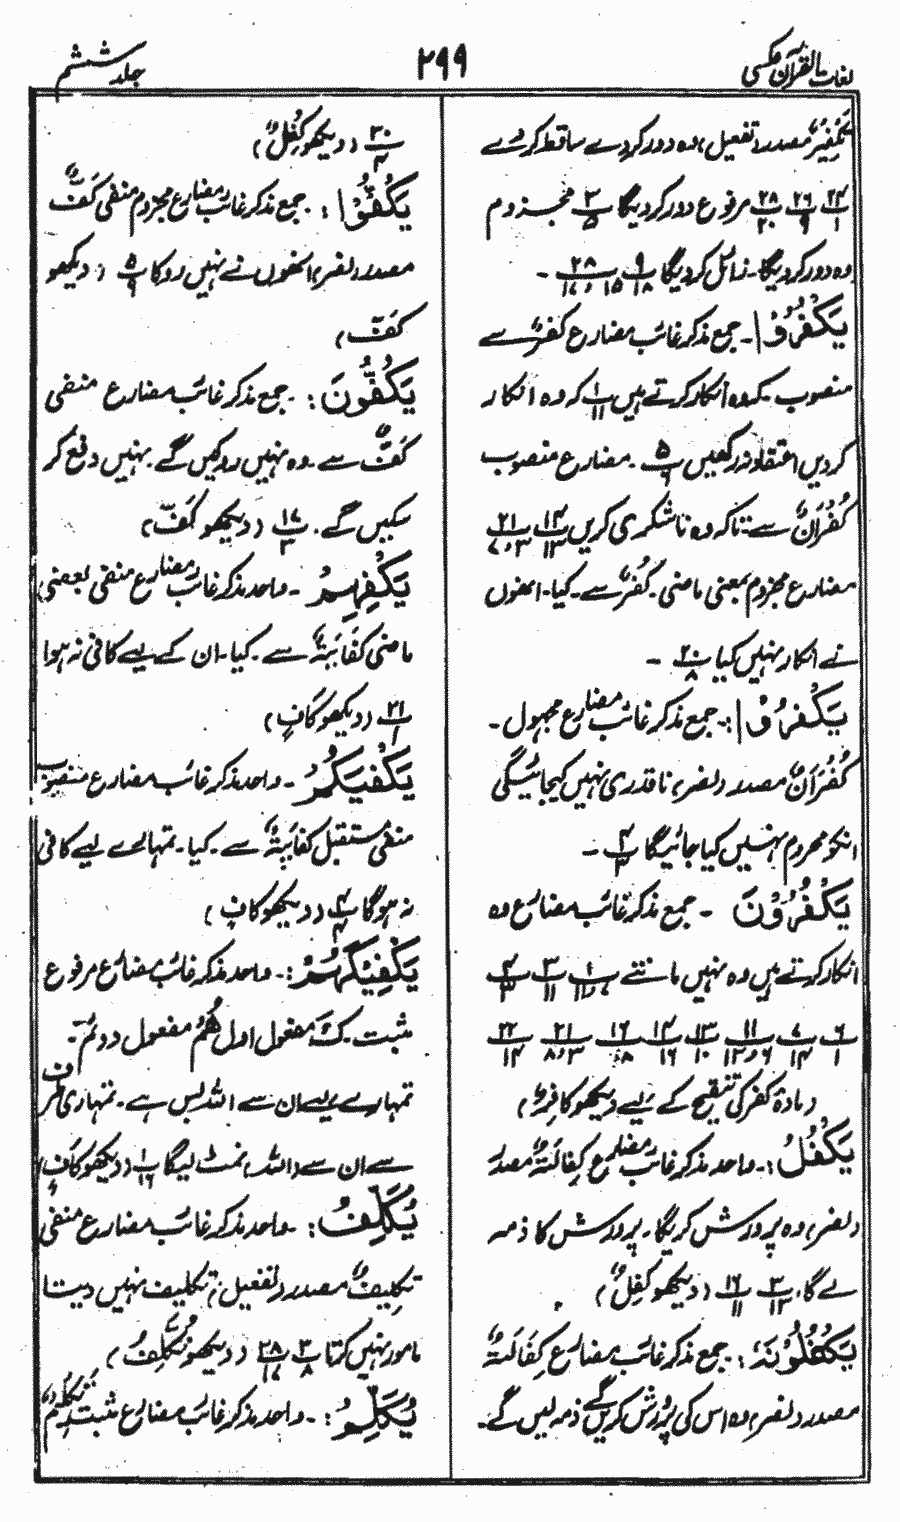 لغات القرآن عکسی
۲۹۹
جلد ششم
تَکْفِیْرٌ مصدر (تفعیل) وہ دور کر دے ساقط کر دے
۲۴/۱ ۲۶/۹ ۲۸/۲۰ مرفوع دور کر دیگا ۳/۵ مجزوم
وہ دور کر دیگا۔ زائل کر دیگا ۹/۱۸ ۲۸/۱۵ و ۱۷ ۔
یَکْفُرُوْا۔ جمع مذکر غائب مضارع کُفْرٌ سے
منصوب۔ کہ وہ انکار کرتے ہیں ۱/۱۱ کہ وہ انکار
کر دیں اعتقاد نہ رکھیں ۵/۶ ۔ مضارع منصوب
کُفْرَانٌ سے۔ تاکہ وہ ناشکری کریں ۱۴/۱۳ ۲۱/۳ و ۷
مضارع مجزوم بمعنی ماضی۔ کُفْرٌ سے۔ کیا۔ انھوں
نے انکار نہیں کیا ۲۰/۸ ۔
یُکْفَرُوْا : جمع مذکر غائب مضارع مجہول۔
کُفْرَانٌ مصدر (نصر) ناقدری نہیں کیجائیگی
انکو محروم نہیں کیا جائیگا ۴/۳ ۔
یَکْفُرُوْنَ ۔ جمع مذکر غائب مضارع وہ
انکار کرتے ہیں وہ نہیں مانتے ۱/۷ و ۱۱ ۳/۱۱ ۴/۳
۶/۱ ۷/۱۴ ۱۱/۶ و ۱۲ ۱۳/۱۰ ۱۴/۱۶ ۱۶/۱۸ ۲۱/۳ و ۸ ۲۲/۱۴
(مادۃ کفر کی تنقیح کے لیے دیکھو کافر)
یَکْفُلُ :۔ واحد مذکر غائب مضارع کِفَالَۃٌ مصدر
(نصر) وہ پرورش کریگا۔ پرورش کا ذمہ
لے گا۔ ۳/۱۳ ۱۶/۱۱ (دیکھو کِفْلٌ)
یَکْفُلُوْنَہٗ : جمع مذکر غائب مضارع کِفَالَۃٌ
مصدر (نصر) وہ اس کی پرورش کریں گے ذمہ لیں گے۔
۲۰/۴ (دیکھو کِفْلٌ)
یَکُفُّوْا : جمع مذکر غائب مضارع مجزوم منفی کَفٌّ
مصدر (نصر) انھوں نے نہیں روکا ۵/۹ (دیکھو
کَفَّ)
یَکُفُّوْنَ :۔ جمع مذکر غائب مضارع منفی
کَفٌّ سے۔ وہ نہیں روکیں گے۔ نہیں دفع کر
سکیں گے۔ ۱۷/۳ (دیکھو کَفَّ)
یَکْفِہِمْ ۔ واحد مذکر غائب مضارع منفی بمعنی
ماضی کِفَایَۃٌ سے۔ کیا۔ ان کے لیے کافی نہ ہوا
۲۱/۱ (دیکھو کَافٍ)
یَکْفِیَکُمْ ۔ واحد مذکر غائب مضارع منصوب
منفی مستقبل کِفَایَۃٌ سے۔ کیا۔ تمہارے لیے کافی
نہ ہوگا ۴/۴ (دیکھو کاف)
یَکْفِیْکَہُمْ :۔ واحد مذکر غائب مضارع مرفوع
مثبت۔ کَ مفعول اول ہُمْ مفعول دوئم۔
تمہارے لیے ان سے اللہ بس ہے۔ تمہاری طرف
سے ان سے (اللہ) نمٹ لیگا ۱/۱۶ (دیکھو کَافٍ)
یُکَلِّفُ : واحد مذکر غائب مضارع منفی
تکلیفٌ مصدر (تفعیل) تکلیف نہیں دیتا
مامور نہیں کرتا ۳/۸ ۲۸/۱۷ (دیکھو نُکَلِّفُ)
یُکَلِّمُ :۔ واحد مذکر غائب مضارع مثبت تکلیمٌ